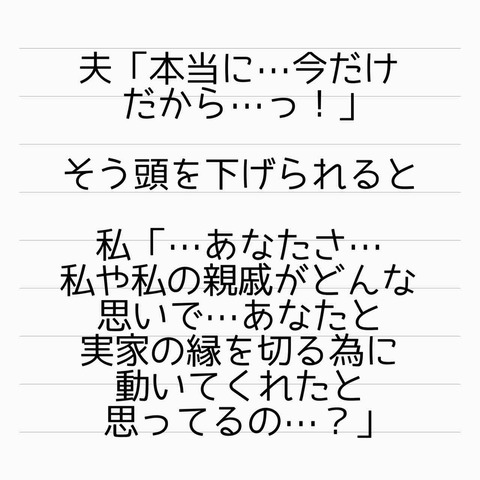 夫「本当に…今だけ
だから…っ！」
そう頭を下げられると
私「…あなたさ…
私や私の親戚がどんな
思いで…あなたと
実家の縁を切る為に
動いてくれたと
思ってるの…？」